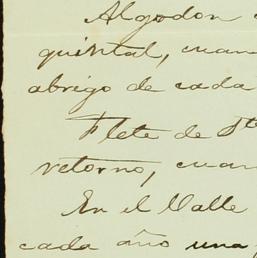 Algodon
quintal, cuan
abrigo de cada
Flete de Sta
retorno, cuan
En el Valle
cada año una